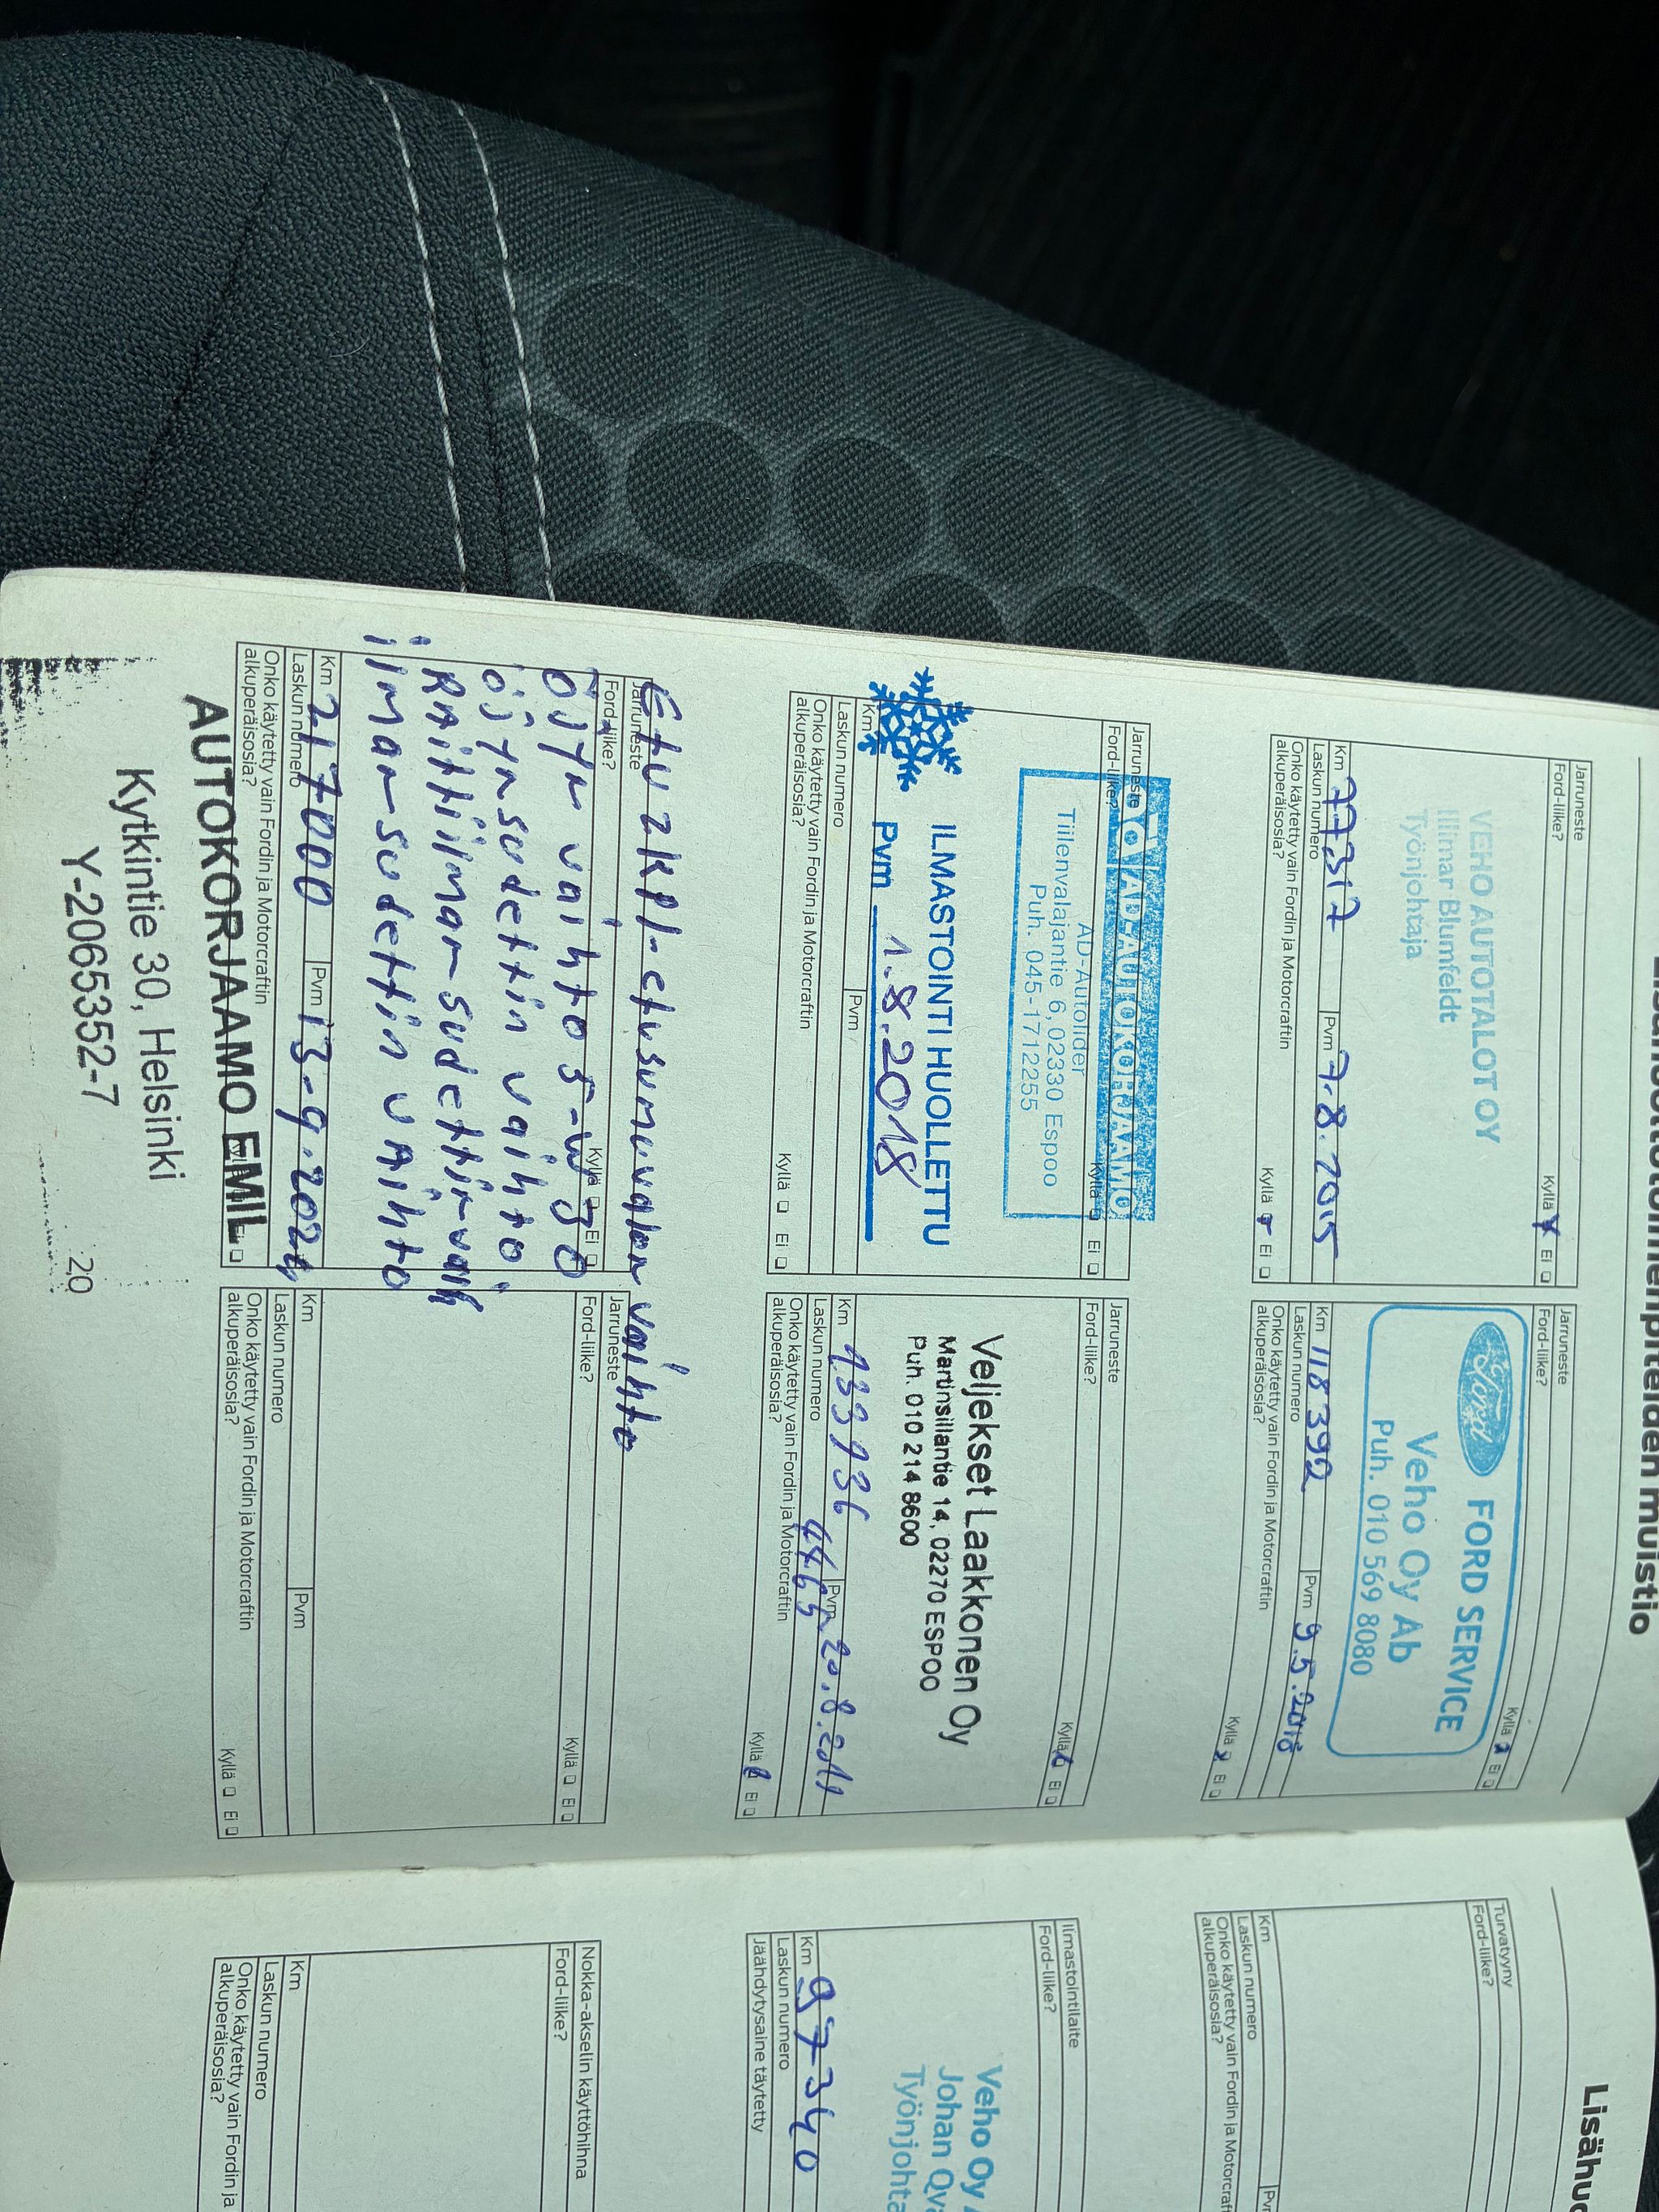 Lisähuoltotoimenpiteiden muistio
Jarruneste
Ford-liike? Kyllä Ei
VEHO AUTOTALOT OY
Illimar Blumfeldt
Työnjohtaja
Km 77317 Pvm 7.8.2015
Laskun numero
Onko käytetty vain Fordin ja Motorcraftin
alkuperäisosia? Kyllä Ei
Jarruneste
Ford-liike? Kyllä Ei
Ford FORD SERVICE
Veho Oy Ab
Puh. 010 569 8080
Km 118392 Pvm 9.5.2018
Laskun numero
Onko käytetty vain Fordin ja Motorcraftin
alkuperäisosia? Kyllä Ei
Jarruneste
Ford-liike? Kyllä Ei
AD-AUTOKORJAAMO
AD-Autolider
Tiilenvalajantie 6, 02330 Espoo
Puh. 045-1712255
ILMASTOINTI HUOLLETTU
Pvm 1.8.2018
Km Pvm
Laskun numero
Onko käytetty vain Fordin ja Motorcraftin
alkuperäisosia? Kyllä Ei
Jarruneste
Ford-liike? Kyllä Ei
Veljekset Laakkonen Oy
Martinsillantie 14, 02270 ESPOO
Puh. 010 214 8600
Km 133936 Pvm 20.8.2019
Laskun numero 4465
Onko käytetty vain Fordin ja Motorcraftin
alkuperäisosia? Kyllä Ei
Jarruneste
Ford-liike? Kyllä Ei
Etu 2 KPl- etusumuvalon vaihto
Öljyn vaihto 5-W 30
öljynsudettin vaihto
Raittiilman sudettin vaih
ilmansudettin vaihto
Km 217000 Pvm 13-9.2024
Laskun numero
Onko käytetty vain Fordin ja Motorcraftin
alkuperäisosia?
AUTOKORJAAMO EMIL
Kytkintie 30, Helsinki
Y-2065352-7
20
Jarruneste
Ford-liike? Kyllä Ei
Km Pvm
Laskun numero
Onko käytetty vain Fordin ja Motorcraftin
alkuperäisosia? Kyllä Ei
Turvatyyny
Ford-liike?
Km
Laskun numero
Onko käytetty vain Fordin ja Motorcraft
alkuperäisosia?
Ilmastointilaite
Ford-liike?
Veho Oy
Johan
Km 97340
Laskun numero
Jäähdytysaine täytetty
Nokka-akselin käyttöhihna
Ford-liike?
Km
Laskun numero
Onko käytetty vain Fordin ja
alkuperäisosia?